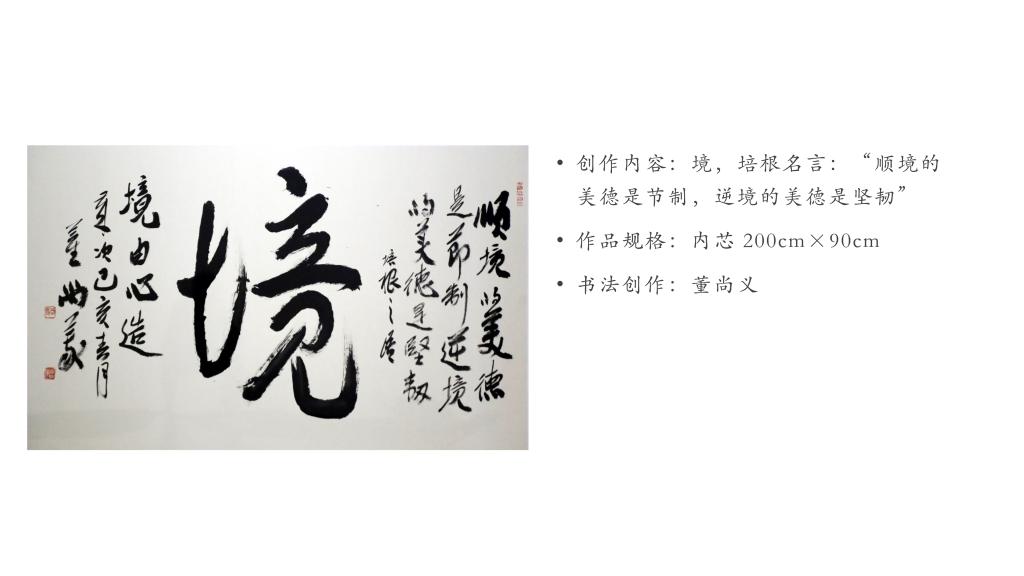 顺境的美德
是節制逆境
的美德是堅韧
培根之语
境
境由心造
歲次己亥春月
董尚義
• 创作内容：境，培根名言：“顺境的
美德是节制，逆境的美德是坚韧”
• 作品规格：内芯 200cm×90cm
• 书法创作：董尚义